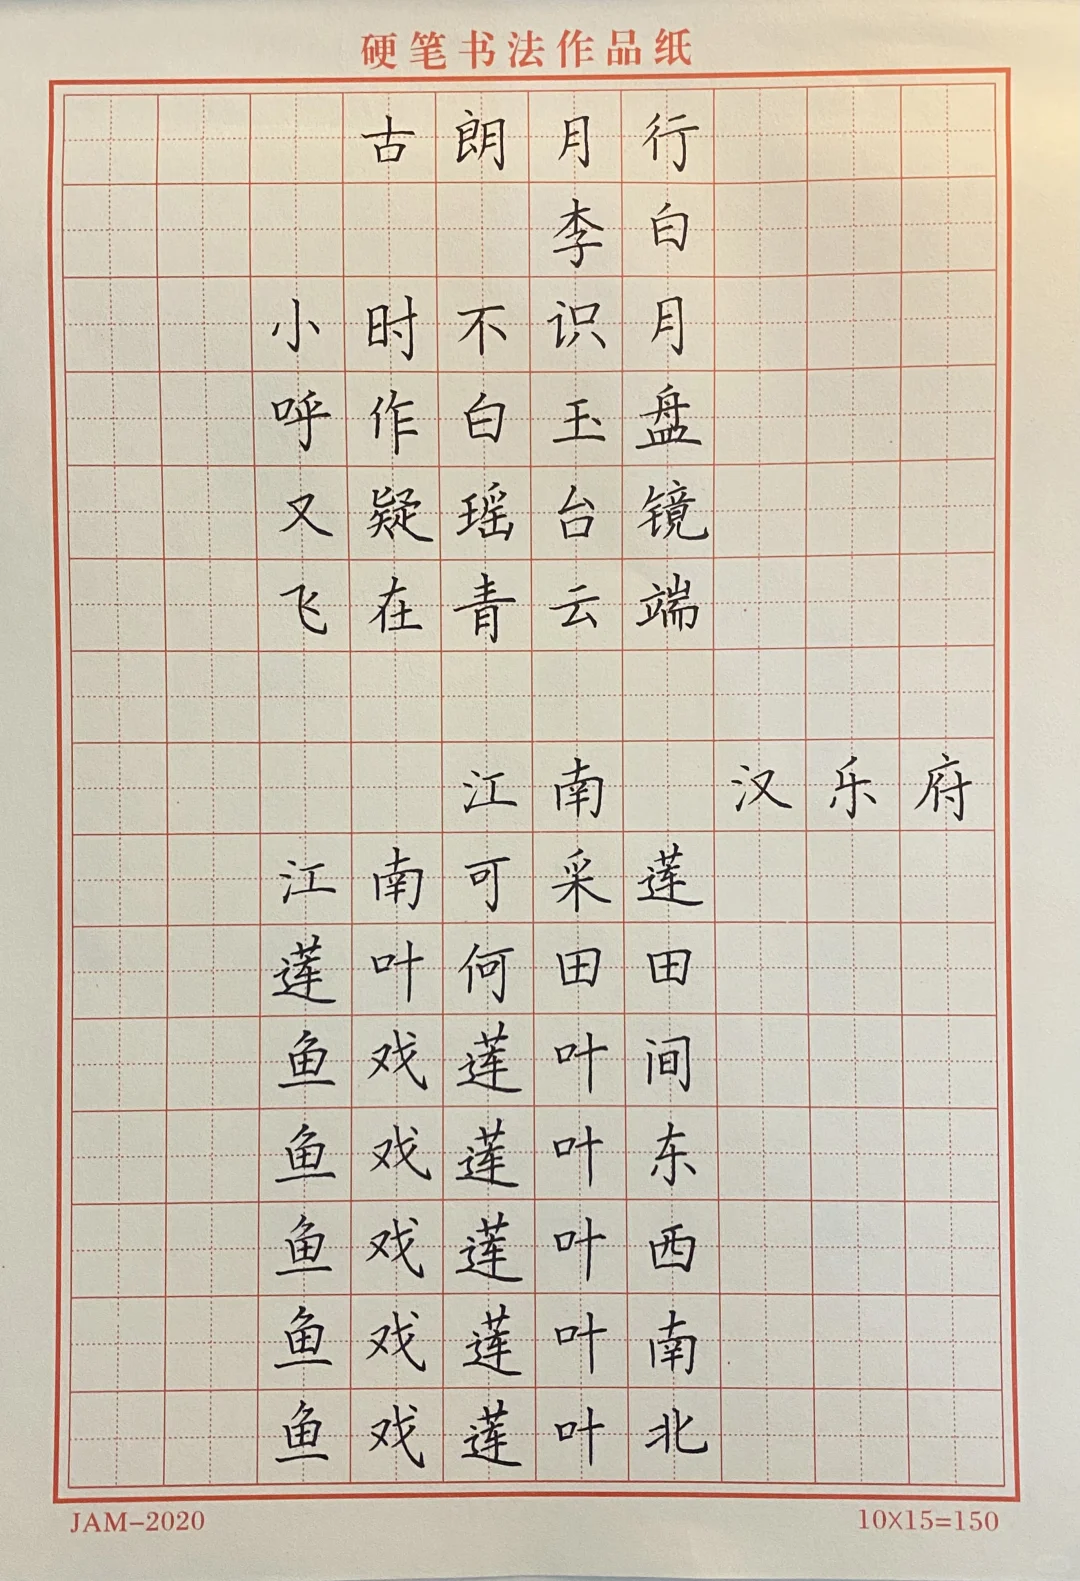 硬笔书法作品纸
古朗月行
李白
小时不识月
呼作白玉盘
又疑瑶台镜
飞在青云端
江南 汉乐府
江南可采莲
莲叶何田田
鱼戏莲叶间
鱼戏莲叶东
鱼戏莲叶西
鱼戏莲叶南
鱼戏莲叶北
JAM-2020 10X15=150